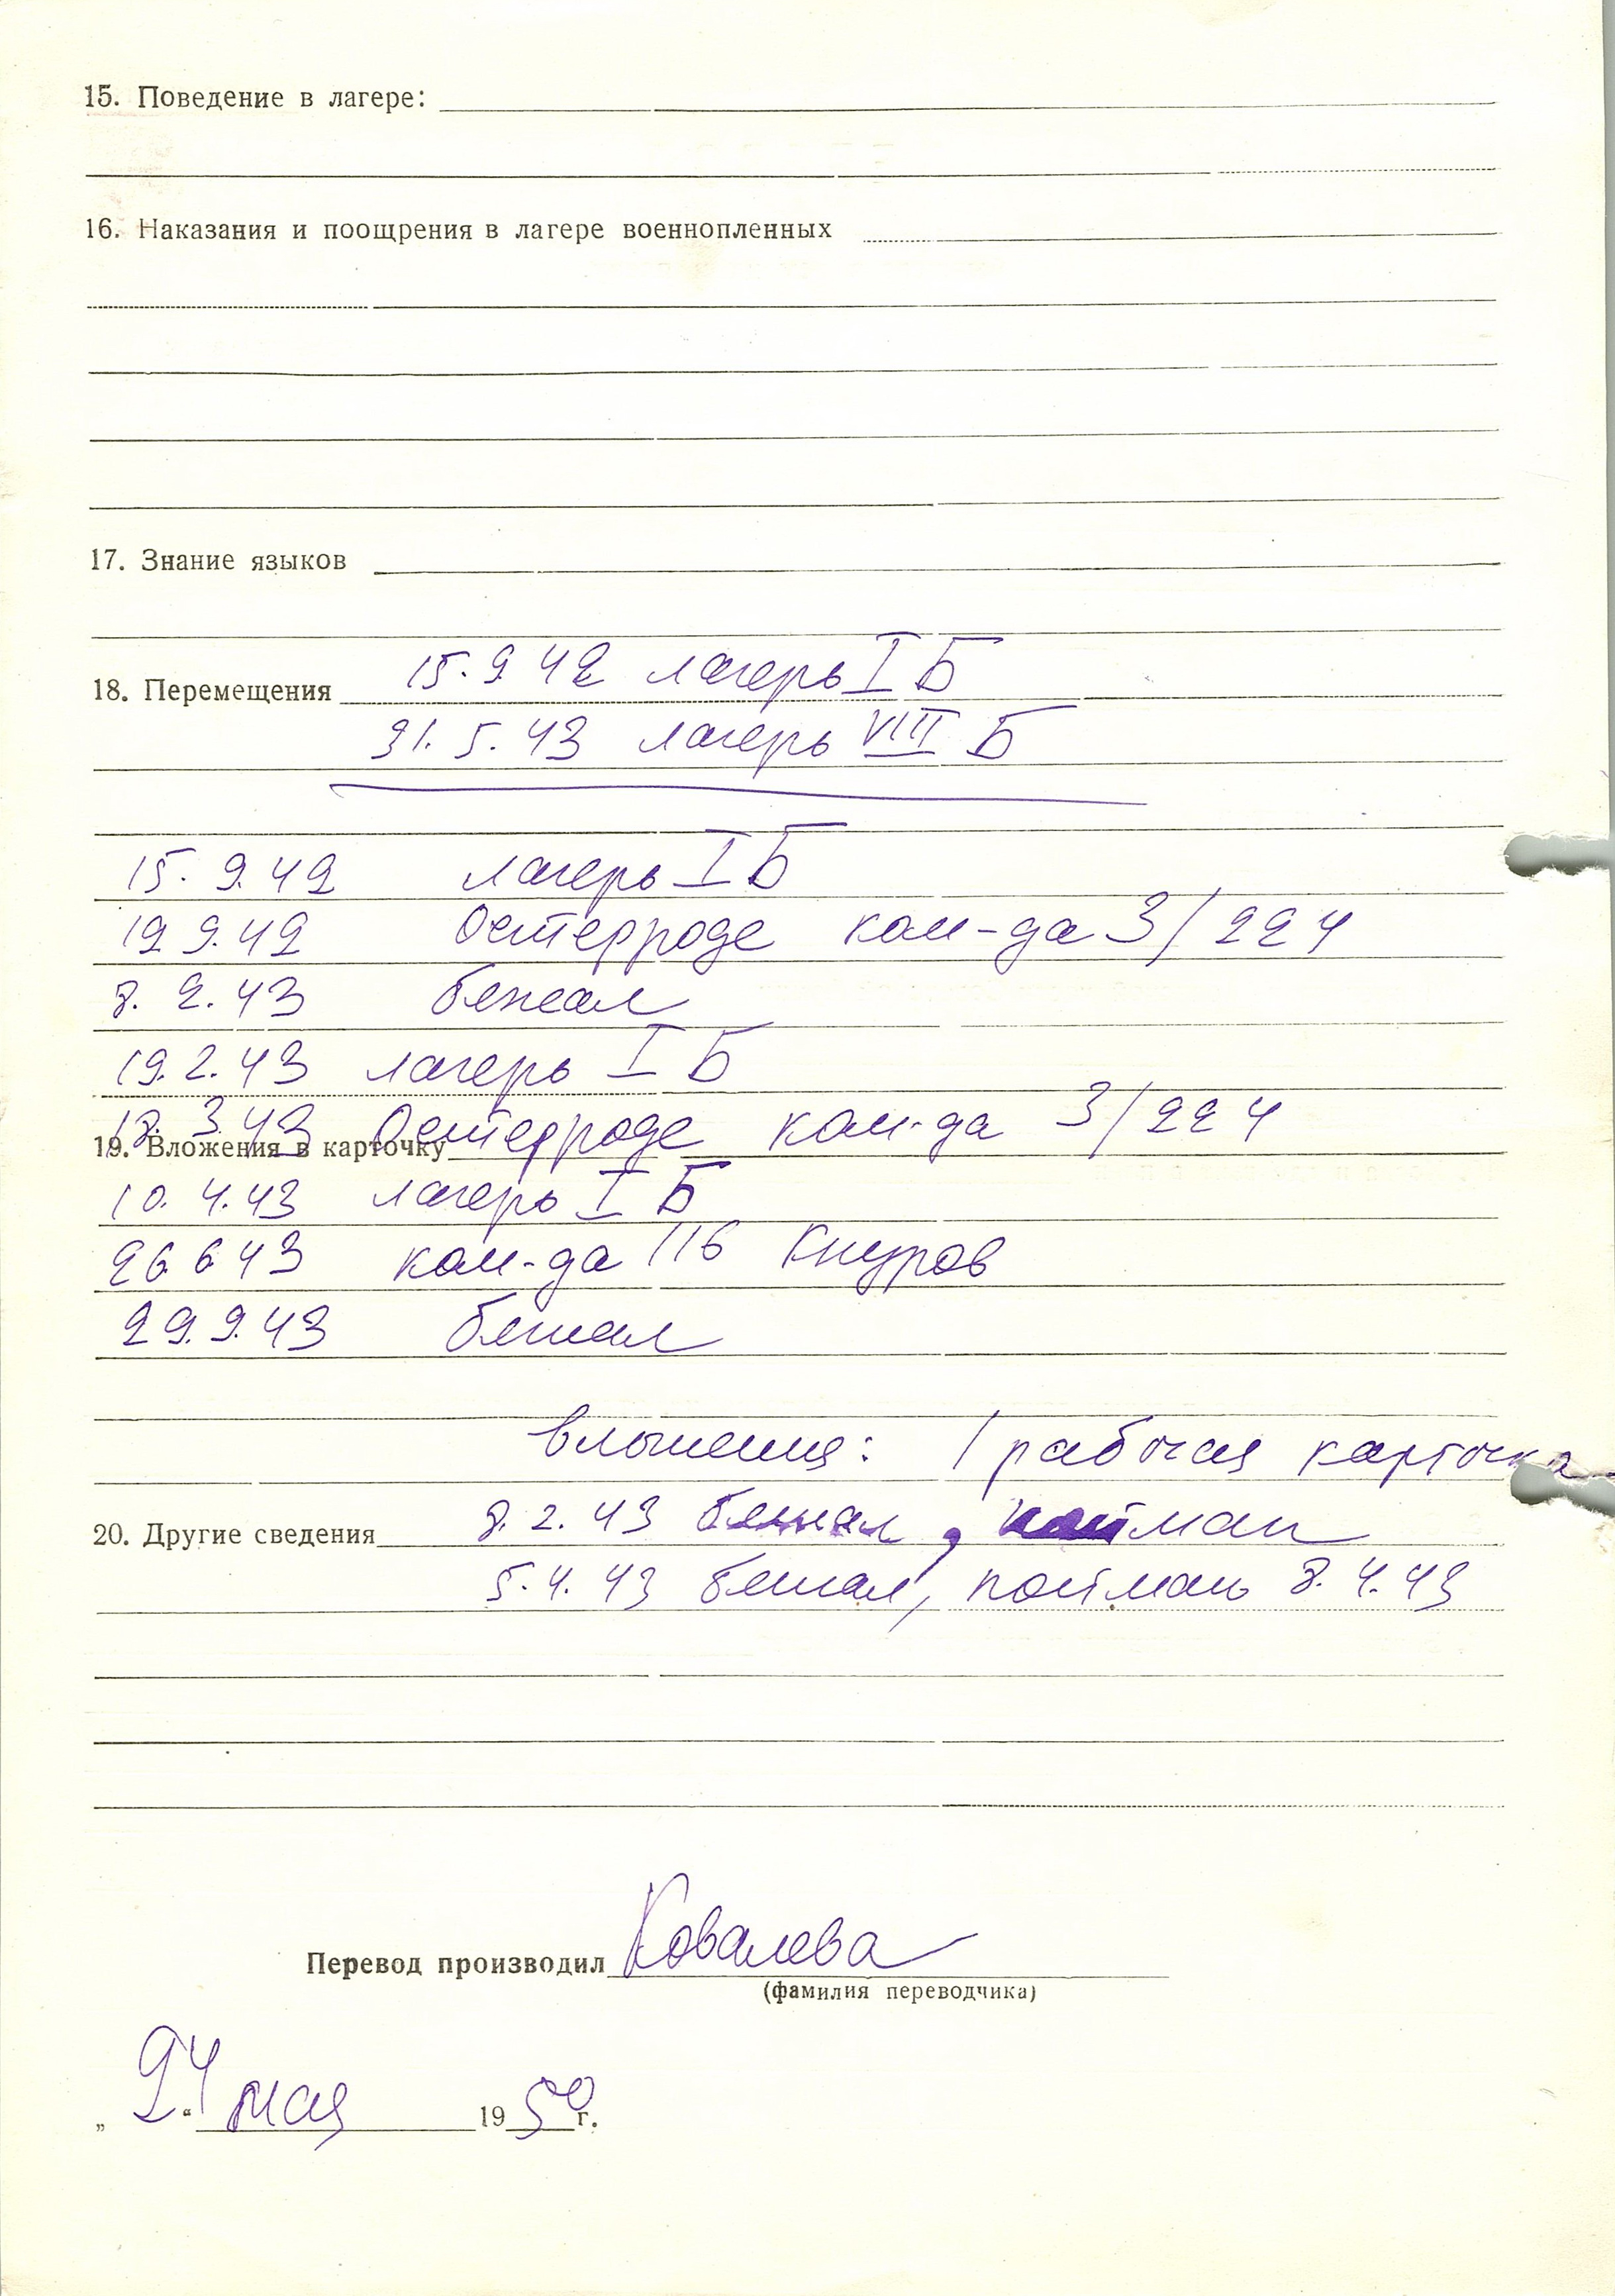 15. Поведение в лагере:
16. Наказания и поощрения в лагере военнопленных
17. Знание языков
18. Перемещения 15.9 42 лагерь I Б
31.5.43 лагерь VIII Б
15.9.42 лагерь I Б
19 9.42 Остерроде ком-да 3/224
8.2.43 бежал
19.2.43 лагерь I Б
18.3.43 Остерроде ком-да 3/224
19. Вложения в карточку
10.4.43 лагерь I Б
26 6 43 ком-да 116 Кнуров
29.9.43 бежал
вложения: 1 рабочая карточка
20. Другие сведения 8.2.43 бежал, пойман
5.4.43 бежал, пойман 8.4.43
Перевод производил Ковалева
(фамилия переводчика)
„24“ мая 1950 г.